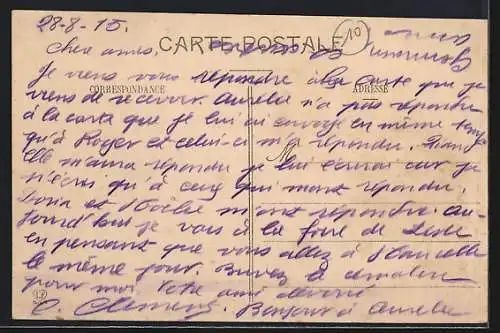 28-8-15.
Chers amis,
CARTE POSTALE
10
Je viens vous répondre à la carte que je
CORRESPONDANCE
ADRESSE
viens de recevoir. Aurelie n'a pas répondu
à la carte que je lui ai envoyé en même temps
qu'à Roger et celui-ci m'a répondu.
Elle m'aura répondu je lui écrirai car je
n'écris qu'à ceux qui m'ont répondu.
et m'ont répondu. Au-
jourd'hui je vais à la foire de
en pensant que vous allez à
le même jour. Buvez la
pour moi. Votre ami dévoué
C. Clemens. Bonjour à Aurelie